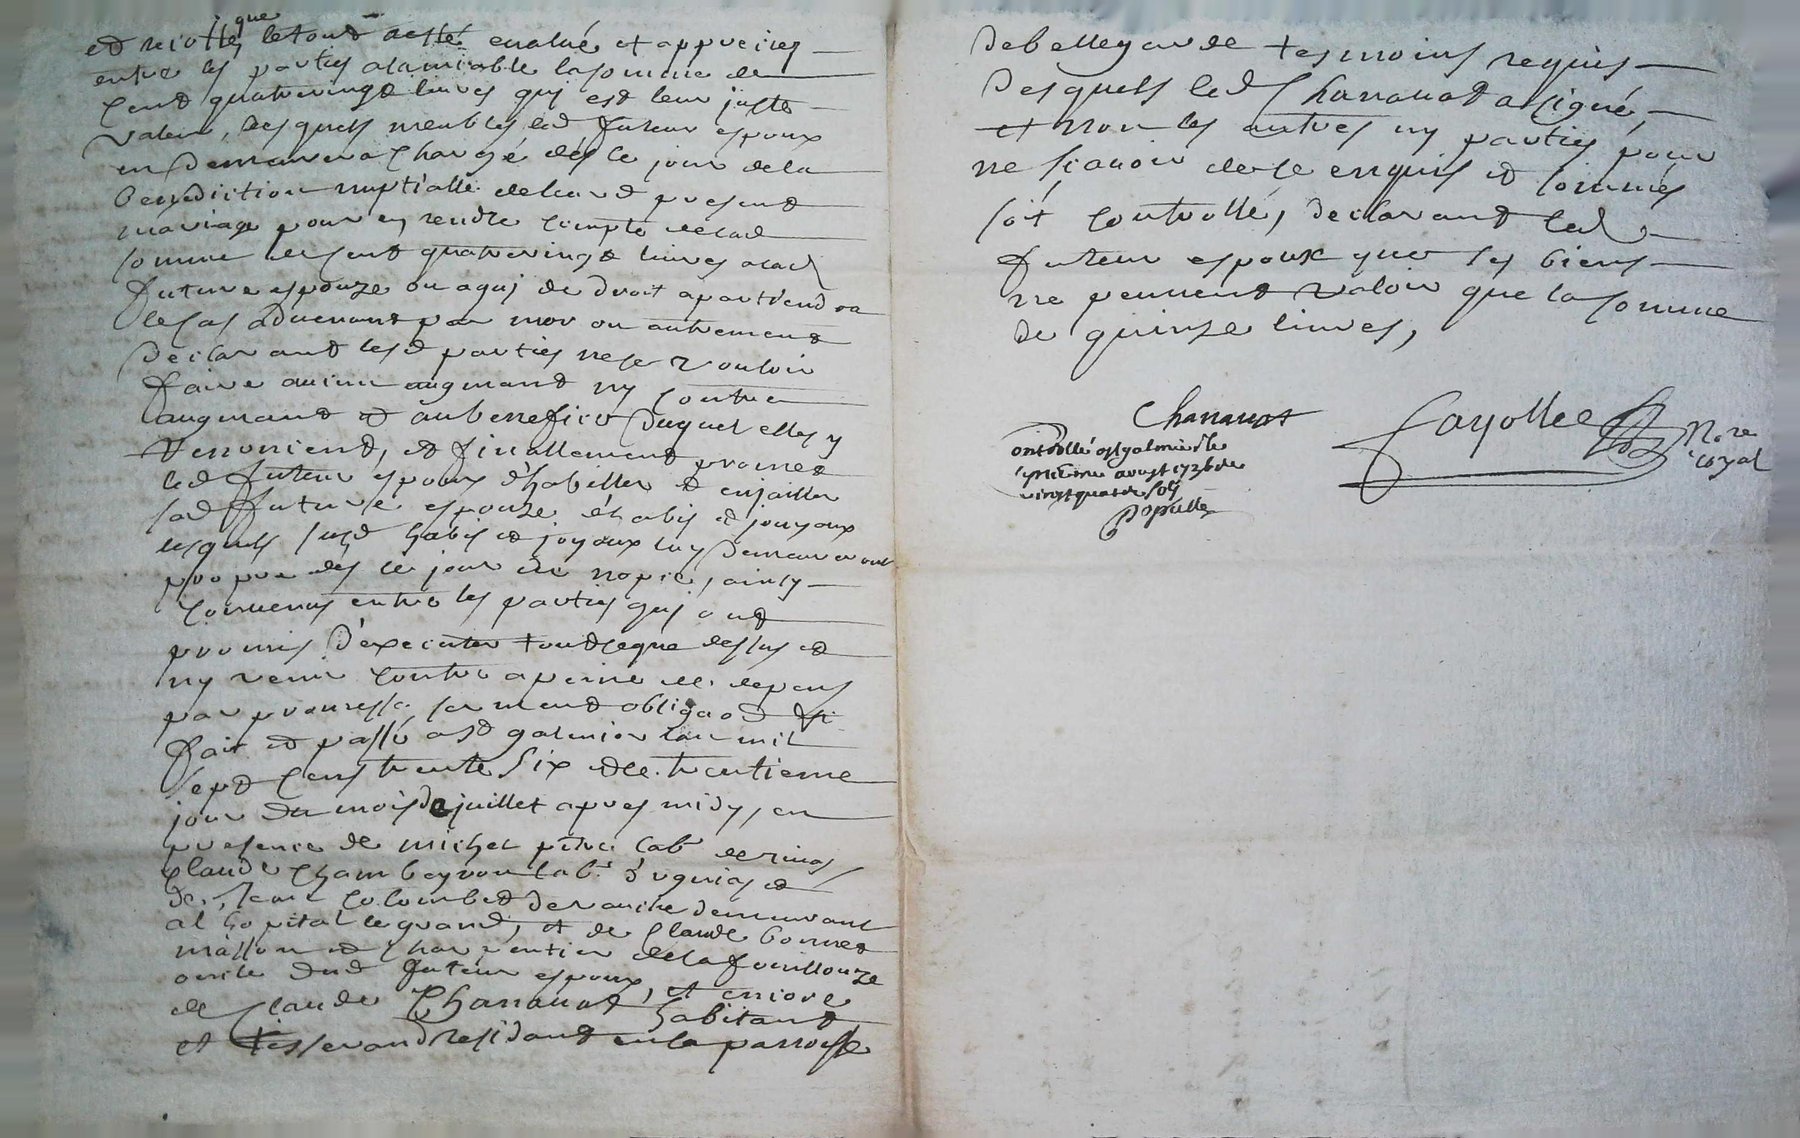 que
et le tout a esté evalué et apprecieez
entre les parties a lamiable la somme de
cent quatrevingt livres qui est leur juste
valeur, desquels meubles led futeur espoux
en demeurera chargé dés le jour de la
benediction nuptialle deleurd present
mariage pour en rendre compte de lad
somme de cent quatrevingt livres a lad
future espouze ou a qui de droit apartiendra
le cas advenant par mor ou autrement
declarant lesd parties ne se vouloir
faire aucun augmant ny contre
augmant et au benefice duquel elles y
renoncient, et finallement promet
led futeur espoux d'habiller et enjailler
sad future espouze d'habis et jouyaux
lesquels susd habis et joyaux luy demeureront
propre dés le jour de nopce, ainsy
convenus entre les parties qui ont
promis d'executer tout ceque dessus et
ny venir contre a peine de depens
par promesse serment obligaon
fait et passé a St galmier l'an mil
sept cens trente six et le trentieme
jour du mois de juillet apres midy, en
presence de michel labr de
Claude Chambeyron labr d'
de Jean Colombet demeurant
al hopital le grand, et de Claude bonnet
masson et charpentier de la fouillouze
oncle dud futeur espoux, et encore
de Claude Chanavat habitant
et tisserand residant en la parroisse
de bellegarde tesmoins requis
desquels led Chanavat a signé,
et non les autres ny parties pour
ne sçavoir de ce enquis et sommés
soit controllé, declarant led
futeur espoux que ses biens
ne peuvent valoir que la somme
de quinze livres,
Chanavat
Fayolle Nore
royal
controllé a st galmier le
aoust 1736 de
vingt quatre sols